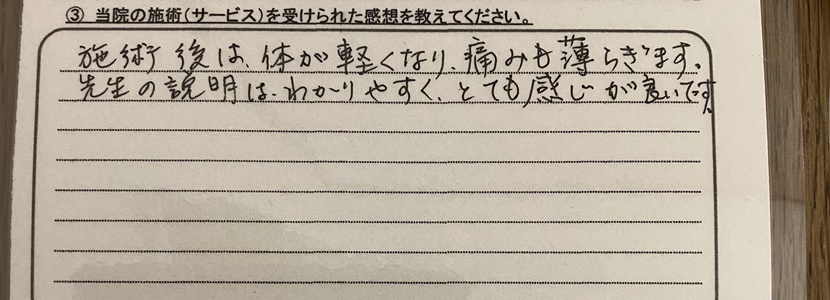 ③ 当院の施術(サービス)を受けられた感想を教えてください。
施術後は、体が軽くなり、痛みも薄らぎます。
先生の説明は、わかりやすく、とても感じが良いです